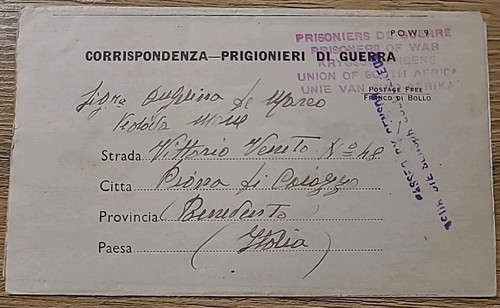 P.O.W. 9
PRISONIERS DE GUERRE
PRISONERS OF WAR
KRYGSGEVANGENE
UNION OF SOUTH AFRICA
UNIE VAN SUID AFRIKA
CORRISPONDENZA—PRIGIONIERI DI GUERRA
POSTAGE FREE
FRANCO DI BOLLO
Sigra Delfina de Marco
Strada Vittorio Veneto No 48
Citta Piana di Caiazzo
Provincia (Benevento
Paesa (Italia)